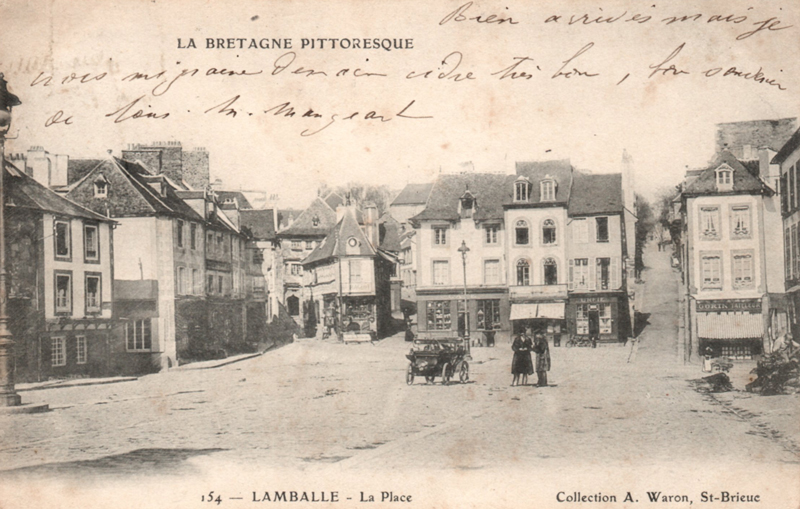 Bien arrivés mais je
LA BRETAGNE PITTORESQUE
migraine cidre très bon, bon souvenir
de tous. M. Mangeart
154 — LAMBALLE - La Place
Collection A. Waron, St-Brieuc